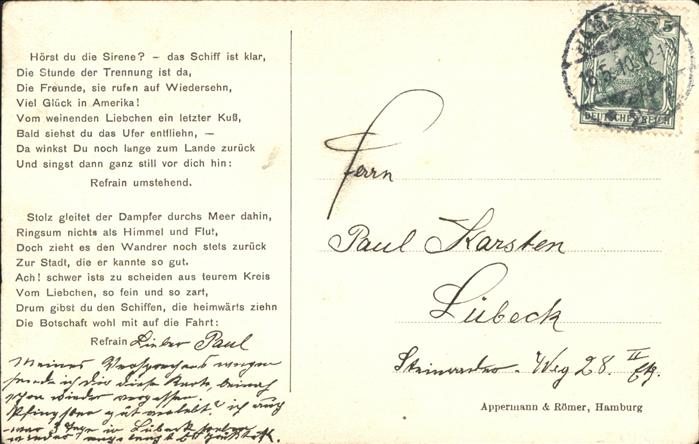 Hörst du die Sirene? – das Schiff ist klar,
Die Stunde der Trennung ist da,
Die Freunde, sie rufen auf Wiedersehn,
Viel Glück in Amerika!
Vom weinenden Liebchen ein letzter Kuß,
Bald siehst du das Ufer entfliehn, –
Da winkst Du noch lange zum Lande zurück
Und singst dann ganz still vor dich hin:
Refrain umstehend.
Stolz gleitet der Dampfer durchs Meer dahin,
Ringsum nichts als Himmel und Flut,
Doch zieht es den Wandrer noch stets zurück
Zur Stadt, die er kannte so gut.
Ach! schwer ists zu scheiden aus teurem Kreis
Vom Liebchen, so fein und so zart,
Drum gibst du den Schiffen, die heimwärts ziehn
Die Botschaft wohl mit auf die Fahrt:
Refrain
Lieber Paul
Meines Versprechens wegen
sende ich dir diese Karte, beinah
schon wieder vergessen.
Pfingsten gut verlebt? ich auch
war 3 Tage in Lübeck
5
HAMBURG
18.5.10.12-1
DEUTSCHES REICH
Herrn
Paul Karsten
Lübeck
Weg 28. II Etg.
Appermann & Römer, Hamburg